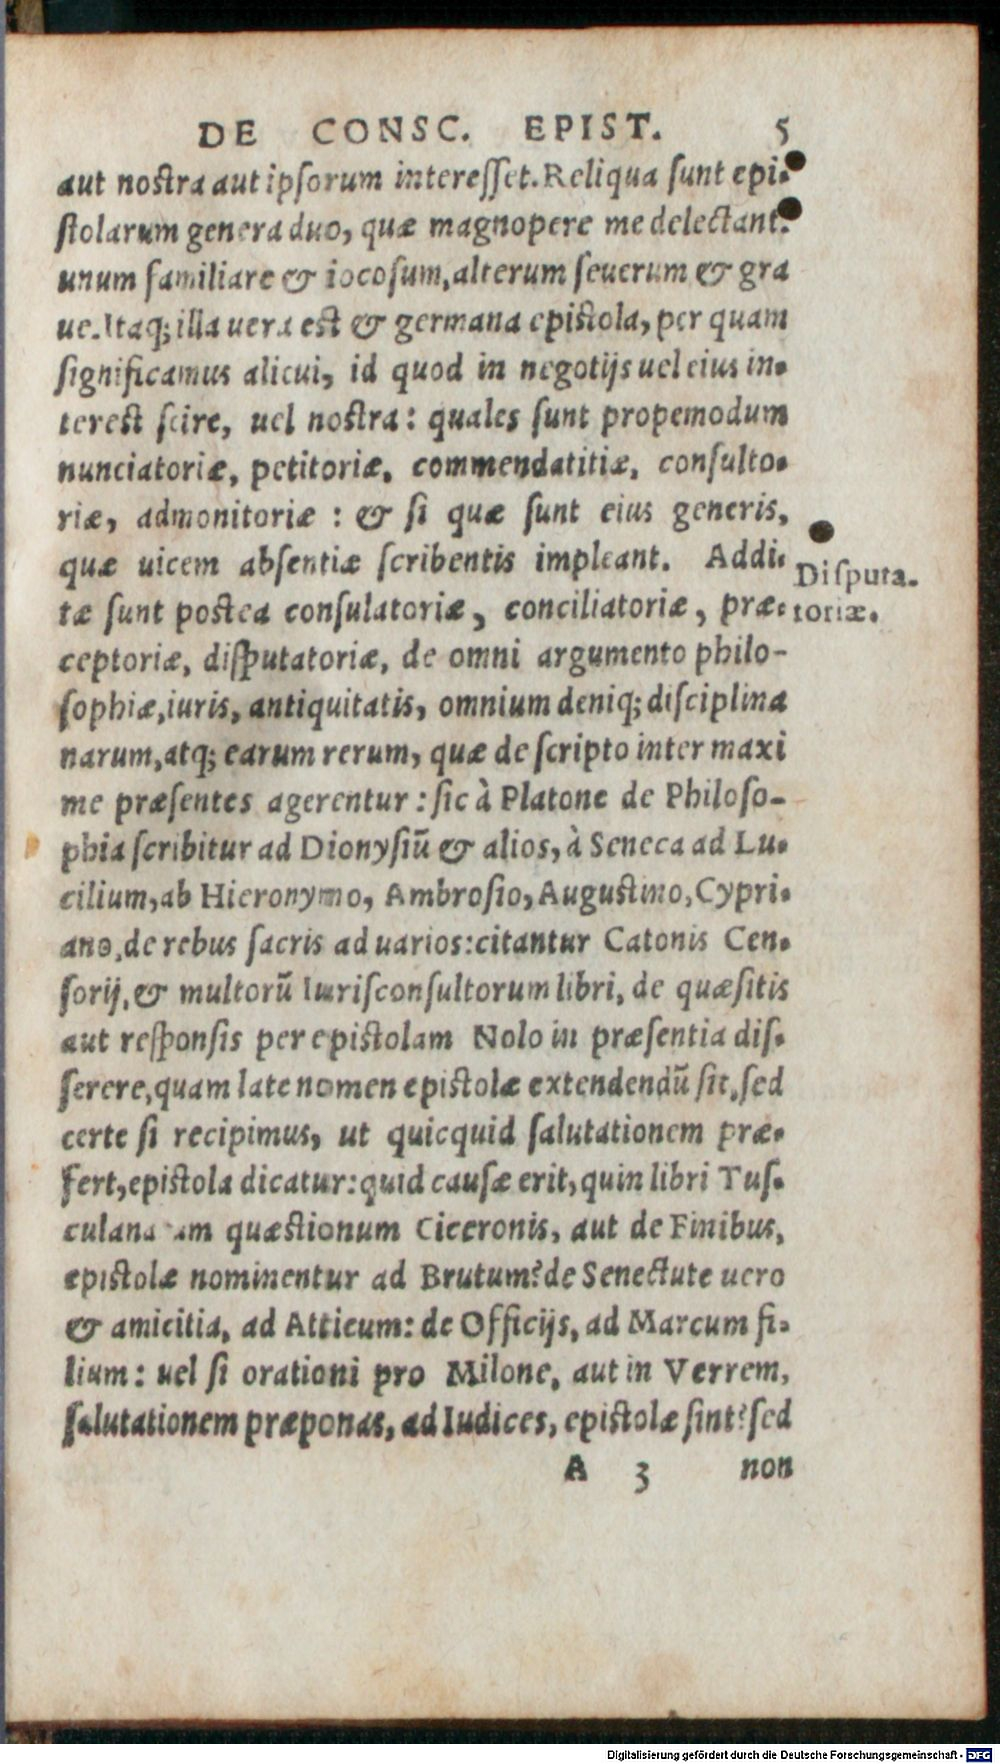 DE CONSC. EPIST. 5
aut nostra aut ipsorum interesset. Reliqua sunt epi-
stolarum genera duo, quæ magnopere me delectant.
unum familiare & iocosum, alterum seuerum & gra
ue. Itaq; illa uera est & germana epistola, per quam
significamus alicui, id quod in negotijs uel eius in-
terest scire, uel nostra: quales sunt propemodum
nunciatoriæ, petitoriæ, commendatitiæ, consulto-
riæ, admonitoriæ : & si quæ sunt eius generis,
quæ uicem absentiæ scribentis impleant. Addi-
tæ sunt postea consulatoriæ, conciliatoriæ, præ-
ceptoriæ, disputatoriæ, de omni argumento philo-
sophiæ, iuris, antiquitatis, omnium deniq; disciplina
narum, atq; earum rerum, quæ de scripto inter maxi
me præsentes agerentur : sic à Platone de Philoso-
phia scribitur ad Dionysiũ & alios, à Seneca ad Lu-
cilium, ab Hieronymo, Ambrosio, Augustino, Cypri-
ano, de rebus sacris ad uarios: citantur Catonis Cen-
sorij, & multorũ Iurisconsultorum libri, de quæsitis
aut responsis per epistolam Nolo in præsentia dis-
serere, quam late nomen epistolæ extendendũ sit, sed
certe si recipimus, ut quicquid salutationem præ-
fert, epistola dicatur: quid causæ erit, quin libri Tus-
culana am quæstionum Ciceronis, aut de Finibus,
epistolæ nominentur ad Brutum? de Senectute uero
& amicitia, ad Atticum: de Officijs, ad Marcum fi-
lium: uel si orationi pro Milone, aut in Verrem,
salutationem præponas, ad Iudices, epistolæ sint? sed
A 3 non
Disputa-
toriæ.
Digitalisierung gefördert durch die Deutsche Forschungsgemeinschaft - DFG